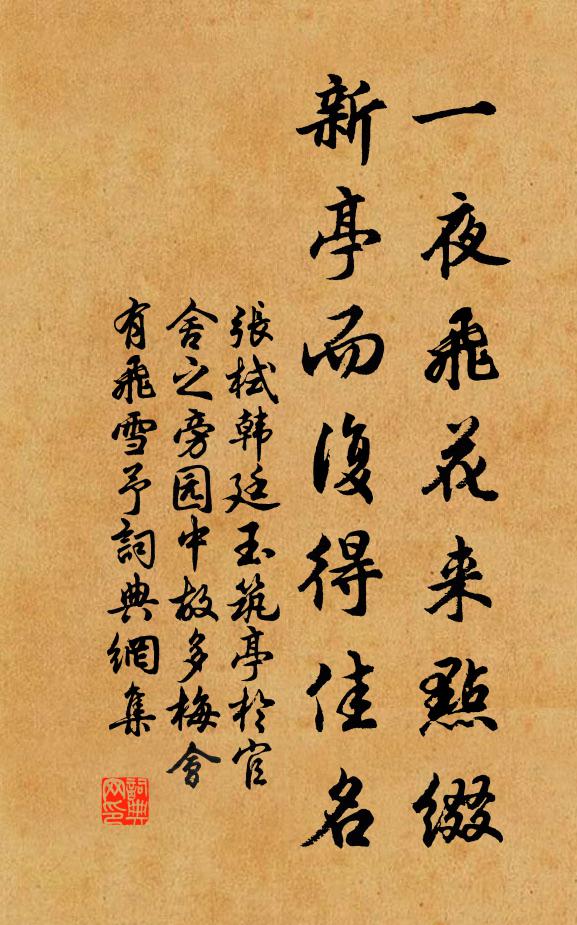 一夜飛花来點缀
新亭而復得佳名
張栻韩廷玉筑亭於官
舍之旁园中故多梅會
有飛雪予詞典網集
詞典网印